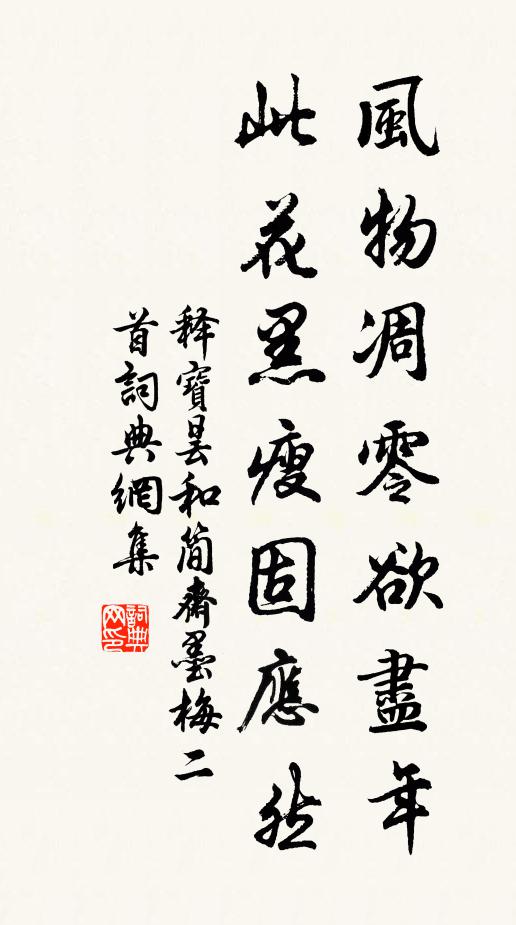 風物凋零欲盡年
此花黑瘦固應然
释寶曇和简齋墨梅二
首詞典網集
詞典网印